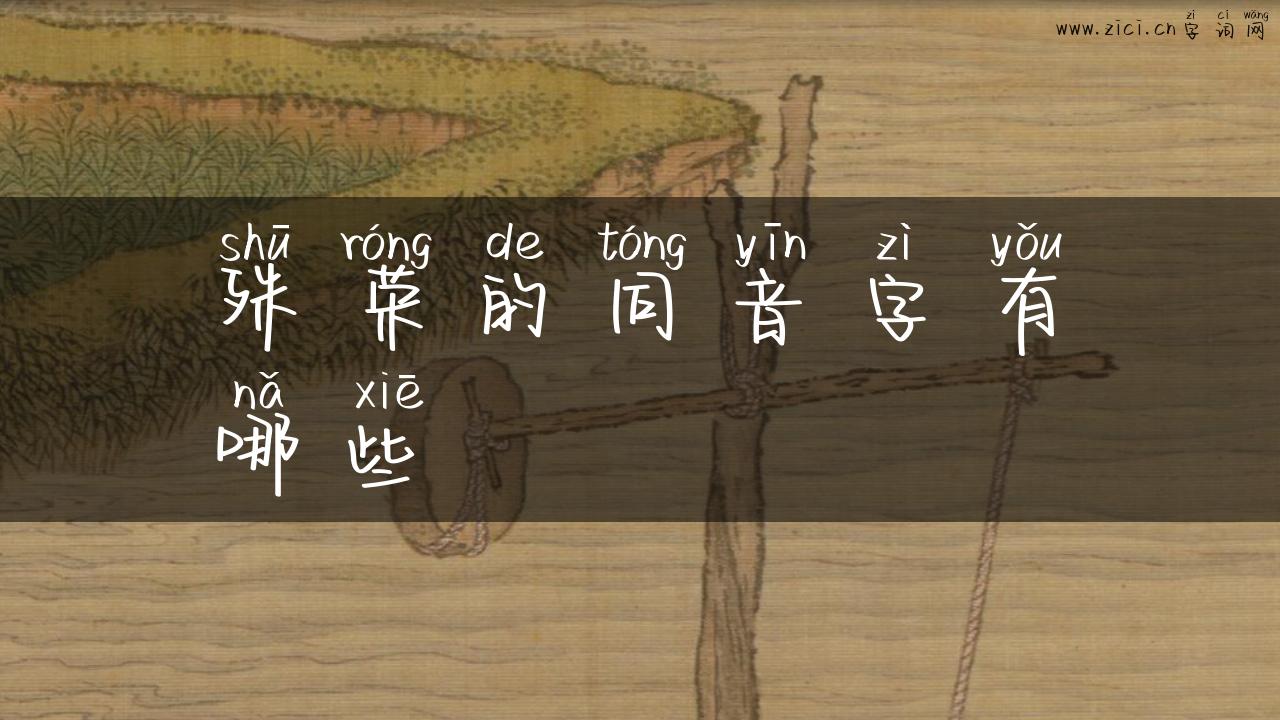 zì cí wǎng
www.zici.cn 字词网
shū róng de tóng yīn zì yǒu
殊荣的同音字有
nǎ xiē
哪些